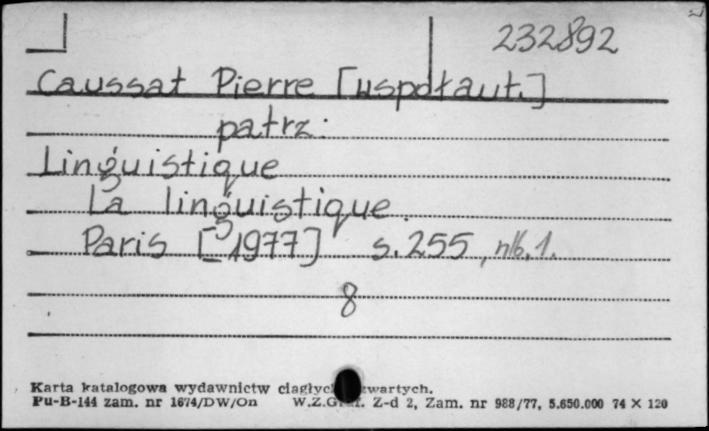 232892
Caussat Pierre [współaut.]
patrz:
Linguistique
La linguistique.
Paris [1977] s. 255, nlb. 1.
8
Karta katalogowa wydawnictw
Pu-B-144 zam. nr 1674/DW/On W.Z.Graf. Z-d 2, Zam. nr 988/77, 5.650.000 74 × 120